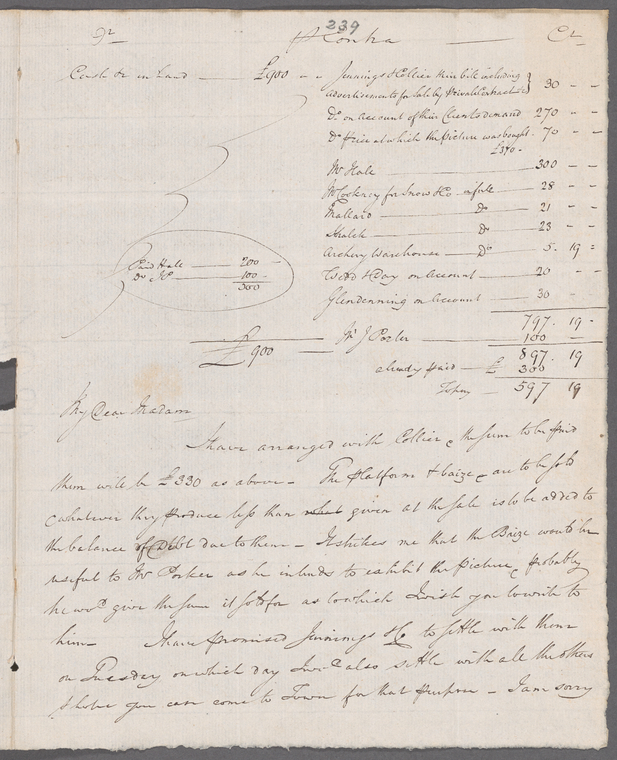 239
Dr
Contra
Cr
Cash &c in hand £900 - -
Jennings & Collier their bill including
advertisements for Sale by Private Contract &c } 30 - -
Do. on account of their Clients demand 270 - -
Do. Price at which the picture was bought 70 - -
£370 -
Mr Hale 300 - -
for Snow & Co in full 28 - -
Mallard Do 21 - -
Do 23 - -
Archery Warehouse Do 5. 19 -
& Day on account 20 - -
Glendenning on account 30 -
797. 19 -
Paid Hale 200 -
Do 100 -
300
£900
Mr J Porter 100 -
897. 19
already paid £ 300
To pay 597 19
My Dear Madam
I have arranged with Collier & the sum to be paid
them will be £330 as above - The Platform & baize are to be sold
& whatever they produce less than what given at the sale is to be added to
the balance of Debt due to them - It strikes me that the Baize would be
useful to Mr Porter as he intends to exhibit the Picture & probably
he wod give the sum it sold for as to which I wish you to write to
him - I have promised Jennings & Co to settle with them
on Tuesday on which day I wod also settle with all the others
I hope you can come to Town for that purpose - I am sorry